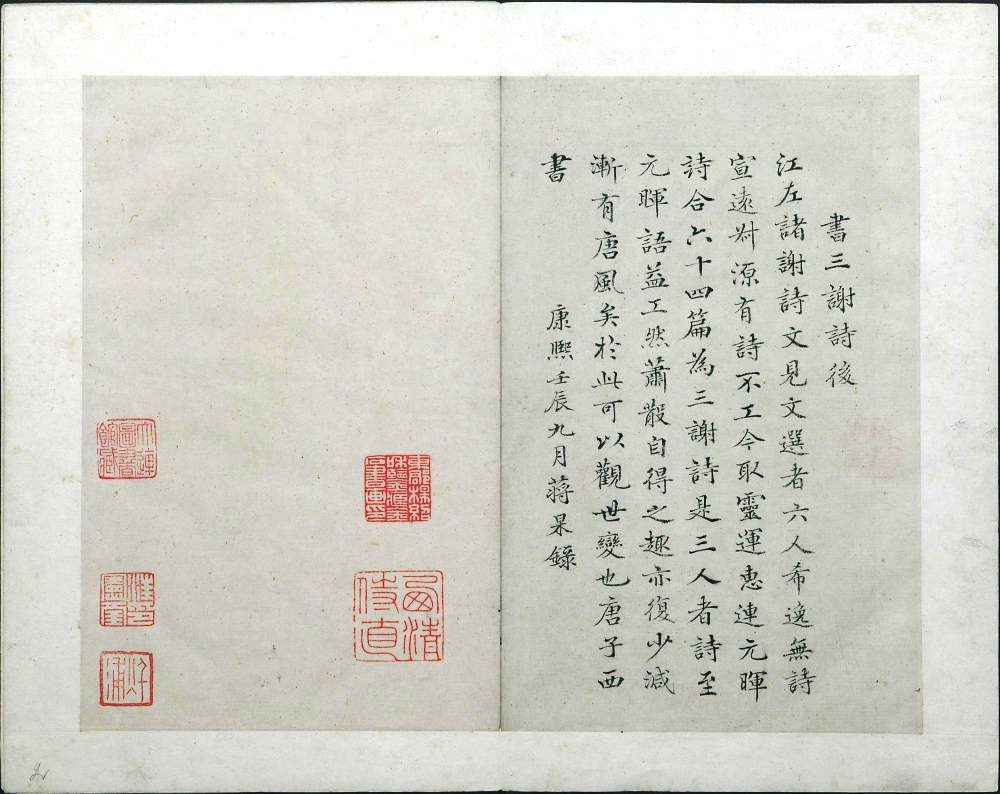 書三謝詩後
江左諸謝詩文見文選者六人希逸無詩
宣遠尗源有詩不工今取靈運惠連元暉
詩合六十四篇為三謝詩是三人者詩至
元暉語益工然蕭散自得之趣亦復少減
漸有唐風矣於此可以觀世變也唐子西
書
康熙壬辰九月蔣杲錄
東郡楊紹和鑒藏金石書畫印
西清侍直
大連圖書館藏